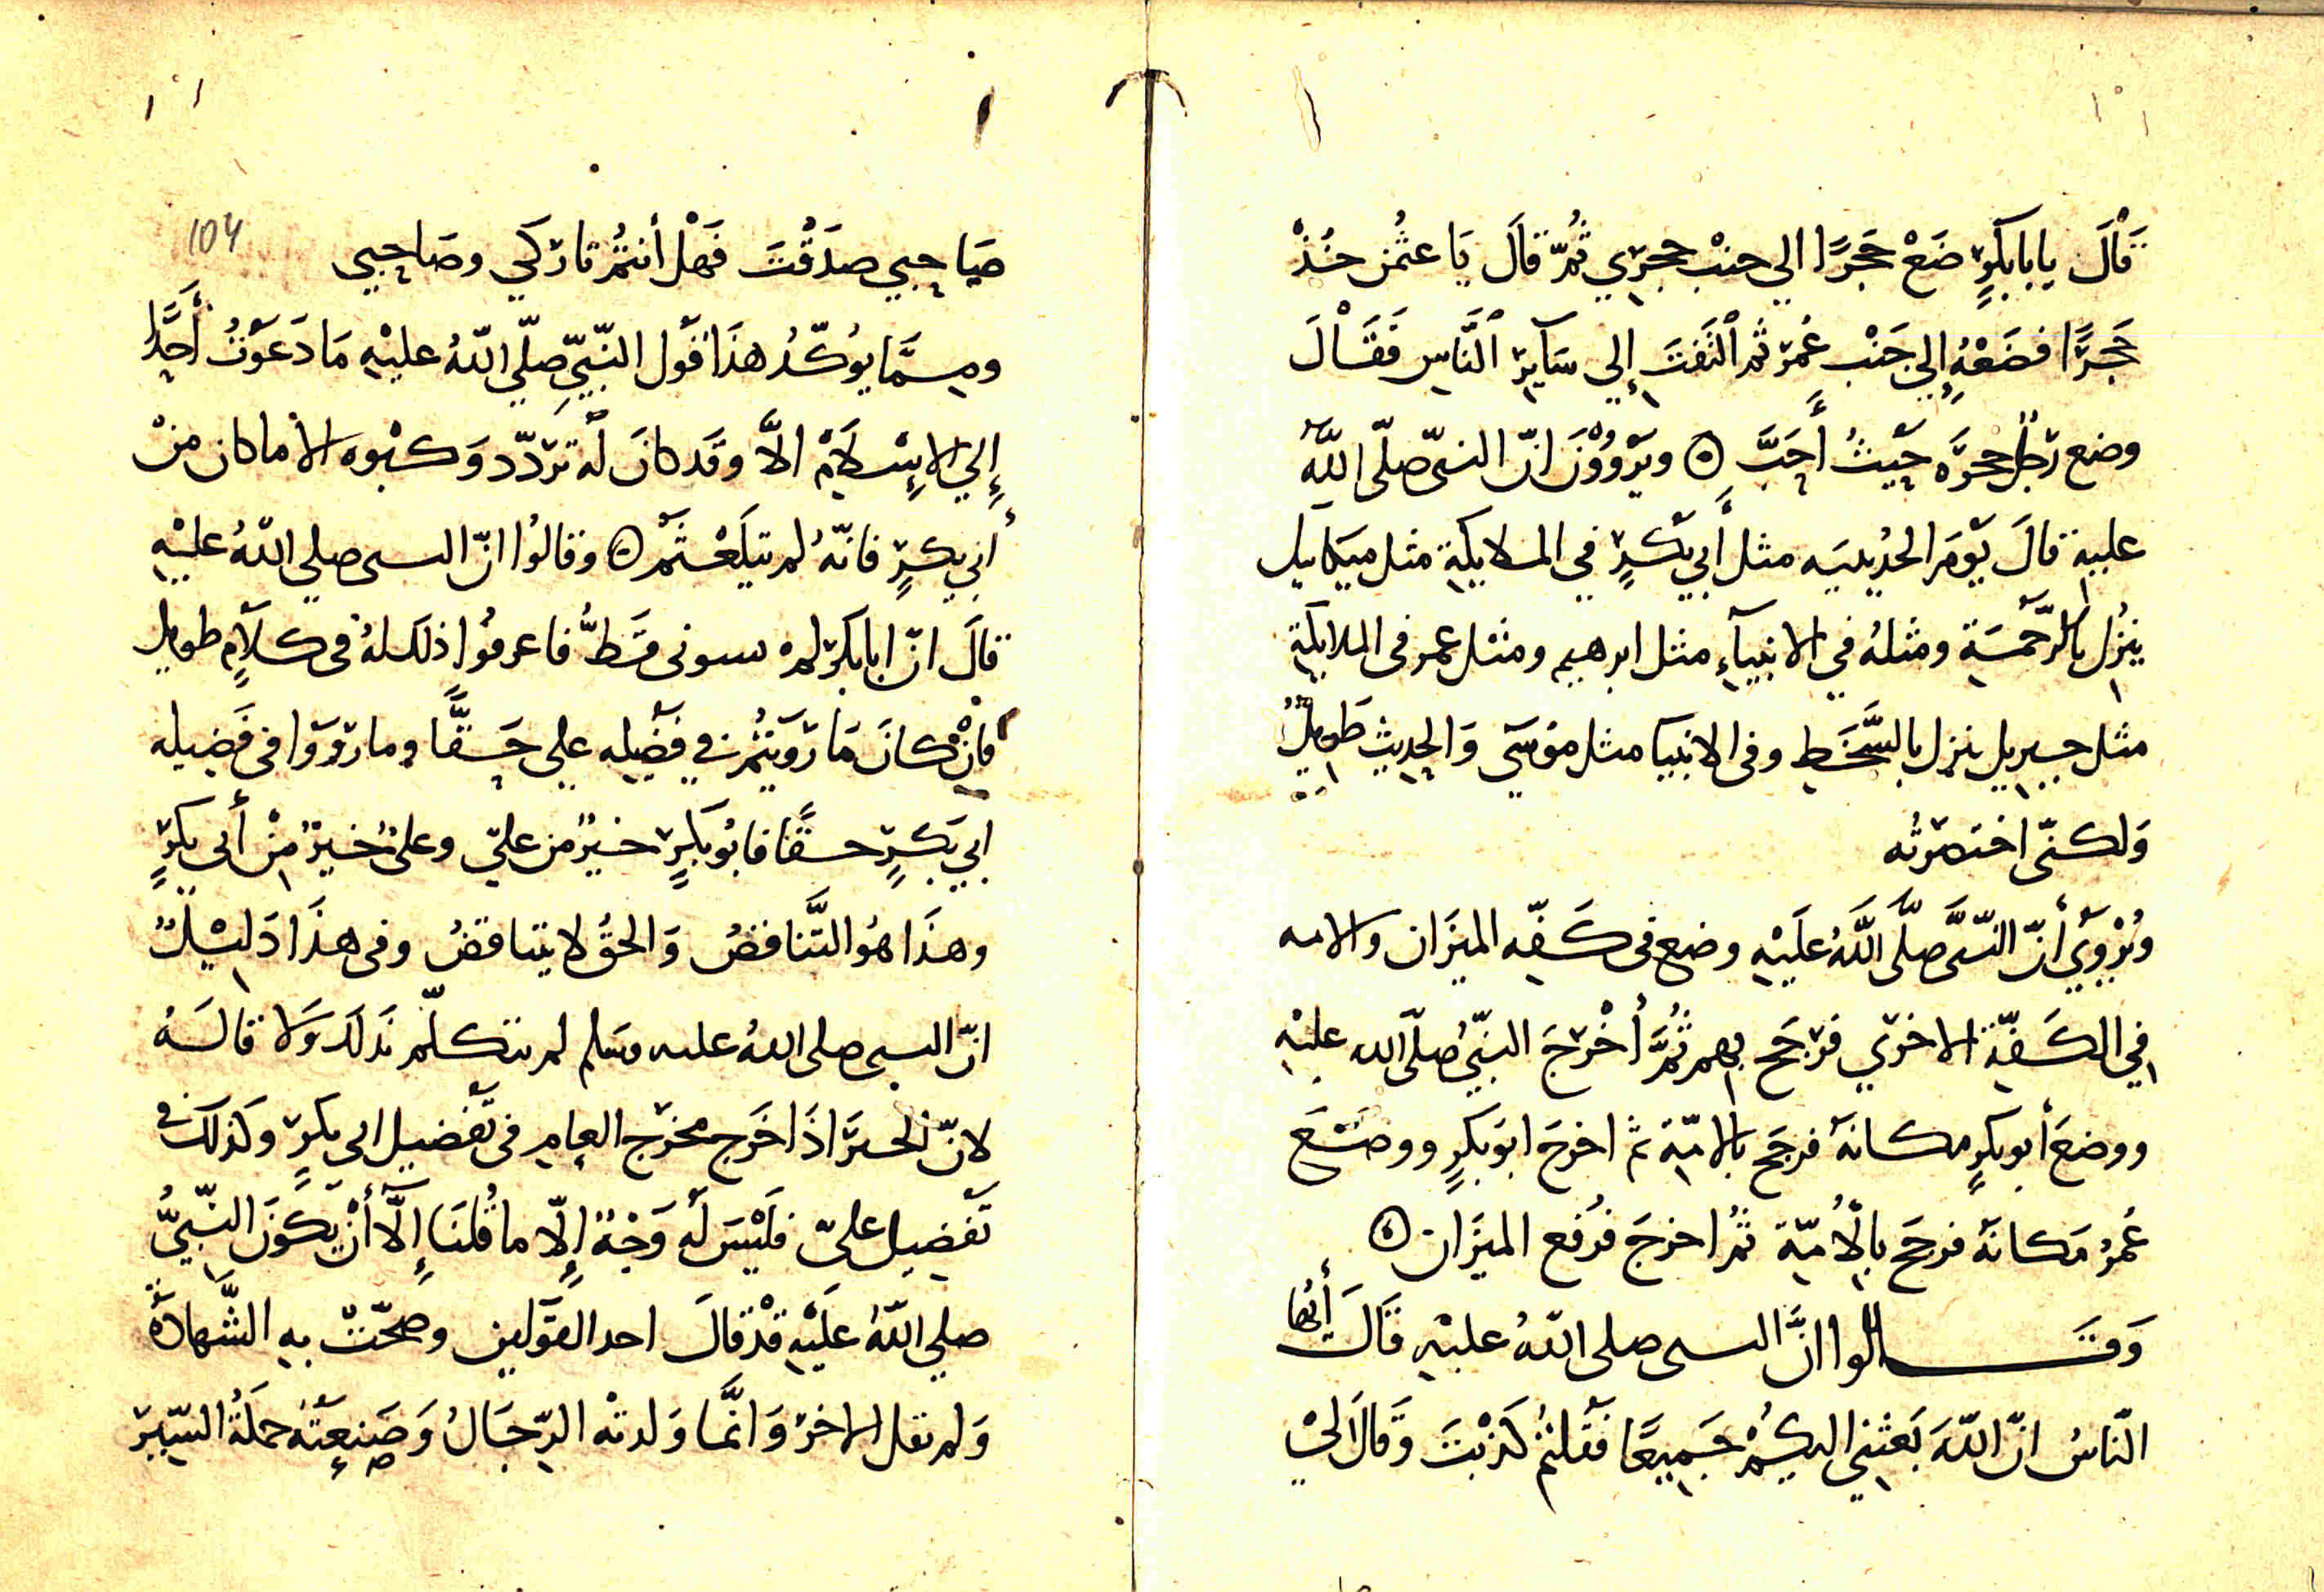 قَالَ يابابكرٍ ضَعْ حَجَرًا الي جنْب حجرِي ثُمّ قالَ يَا عثمٰن خُذْ
حَجَرًا فضَعْهُ إلي جَنْبِ عُمَر ثم الْتَفَتَ إلي سَآيِر النَّاسِ فَقَالَ
وضع رَجُلٌ حجرَه حَيْثُ أَحَبَّ ۞ ويَرْوُوْنَ انّ النبىّ صلّى اللهُ
عليهِ قالَ يَوْمَ الحُدَيبيَه مثل أَبي بَكْرٍ في الملايكةِ مثل ميكاييل
ينزِل بالرَّحْمَةِ ومثلهُ في الانبيآءِ مثل ابرهيم ومثل عمر فى الملايكةِ
مثل جبريل ينزل بالسَّخَطِ وفى الانبيا مثل مُوسَي وَالحديث طَوِيلٌ
وَلكنّى اختصَرتُه
وَيُرْوَي أَنّ النّبىَّ صلَّى اللَّهُ عَلَيْهِ وضع فى كَفّه الميزَان والامه
في الكَفّةِ الاخرَي فرَجَح بهم ثُمَّ أُخْرِجَ النّبيّ صَلّى الله عليْهِ
ووضعَ أبو بكرٍ مكانهُ فرجَح بالامّة ثم اخرجَ ابوَبكرٍ ووضَعَ
عُمَرُ مَكانهُ فرجَح بالْأُمّةِ ثمُ اخرجَ فرُفع الميزَان ۞
وَقَالوا انَّ النبى صلى اللهُ عليْهِ قَالَ أَيُّها
النّاسُ انّ اللهَ بَعَثنِي اليكُمْ جَمِيعًا فَقُلتمْ كَذبْتَ وَقالَ لي
صَاحِبِي صدَقْتَ فَهَلْ أنتمُ تارَكي وصَاحِبي
104
ومِمَّا يوُكّدُ هذَا قَول النّبيّ صلّي اللهُ عليْهِ مَا دَعَوْتُ أَحَدًا
إِلي الاِسْلَامْ الاَّ وقَد كانَ لَهُ تردّد وَكبْوه الا ما كان منْ
أَبي بكرٍ فانّهُ لم يتَلَعْثَمْ ۞ وقالُوا انّ النبى صلي اللهُ عليْهِ
قالَ انّ ابابكر لم يسونى قَطُّ فاعرفُوا ذلك لهُ فى كلَامٍ طويل
فَانْ كانَ مَا رَوَيْتُمْ في فَضِيله علي حَقًّا وما رَوَوا فى فَضِيله
ابي بَكرٍ حقًّا فابُو بَكرٍ خيرٌ من عليّ وعليٌّ خيرٌ مِنْ أَبى بكرٍ
وهذَا هُوَ التَّناقضُ وَالحقُّ لا يتناقضُ وفى هذَا دَليْلٌ
انّ النبى صلى اللهُ عليه وسَلم لم يتكلّم بَذلكَ وَلا قالَهُ
لانّ الخبرَ اذَا خَرَج مخرَج العامِ فى تَفْضيل ابى بكرٍ وكَذلكَ فى
تَفْضِيل علىّ فلَيْسَ لَهُ وَجْهٌ إلّا ما قُلنَا إِلَّا أَنْ يَكُوَنَ النّبيُّ
صلي اللهُ عَلَيْهِ قدْ قالَ احد القوَلين وصَحّتْ به الشَّهادَةُ
وَلم يقل الاخرَ وَانَّما وَلدتْه الرّجَالُ وَصَنعَتْهُ حملَةُ السّيرَ